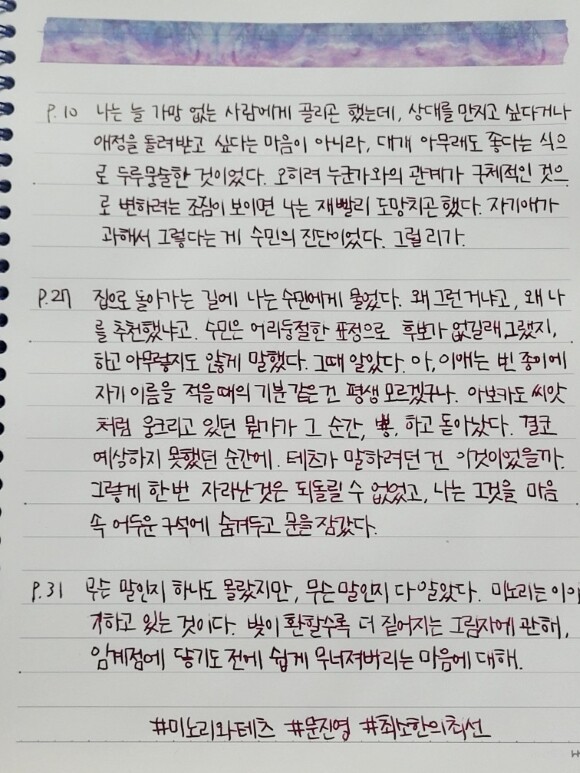 p.10 나는 늘 가망 없는 사람에게 끌리곤 했는데, 상대를 만지고 싶다거나
애정을 돌려받고 싶다는 마음이 아니라, 대개 아무래도 좋다는 식으
로 두루뭉술한 것이었다. 오히려 누군가와의 관계가 구체적인 것으
로 변하려는 조짐이 보이면 나는 재빨리 도망치곤 했다. 자기애가
과해서 그렇다는 게 수민의 진단이었다. 그럴 리가.
p.27 집으로 돌아가는 길에 나는 수민에게 물었다. 왜 그런 거냐고, 왜 나
를 추천했냐고. 수민은 어리둥절한 표정으로 후보가 없길래 그랬지,
하고 아무렇지도 않게 말했다. 그때 알았다. 아, 이애는 빈 종이에
자기 이름을 적을 때의 기분 같은 건 평생 모르겠구나. 아보카도 씨앗
처럼 웅크리고 있던 뭔가가 그 순간, 뿅, 하고 돋아났다. 결코
예상하지 못했던 순간에. 테츠가 말하려던 건 이것이었을까.
그렇게 한번 자라난 것은 되돌릴 수 없었고, 나는 그것을 마음
속 어두운 구석에 숨겨두고 문을 잠갔다.
p.31 무슨 말인지 하나도 몰랐지만, 무슨 말인지 다 알았다. 미노리는 이야
기하고 있는 것이다. 빛이 환할수록 더 짙어지는 그림자에 관해,
임계점에 닿기도 전에 쉽게 무너져버리는 마음에 대해.
#미노리와테츠 #문진영 #최소한의최선